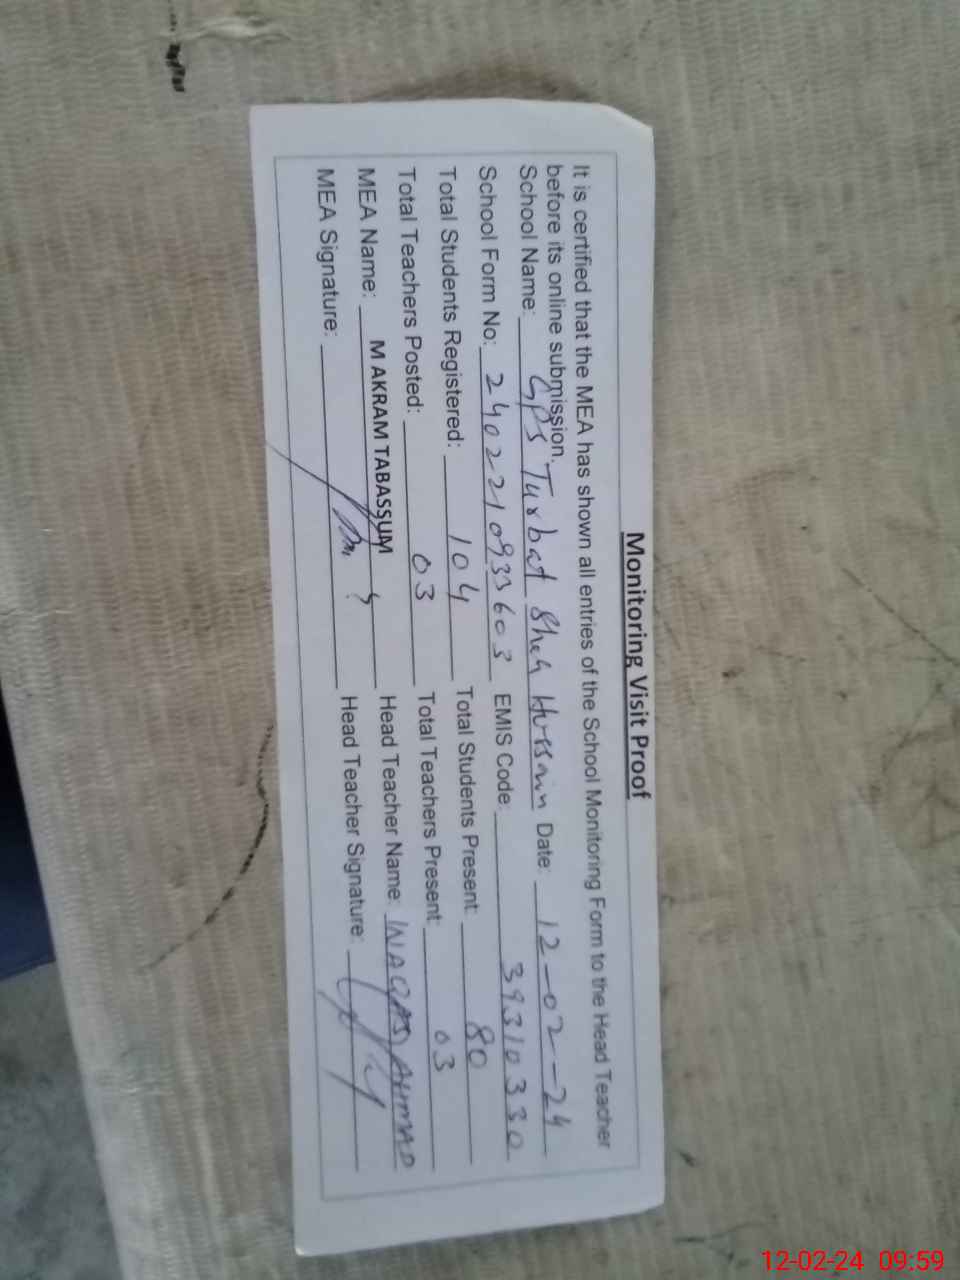 Monitoring Visit Proof
It is certified that the MEA has shown all entries of the School Monitoring Form to the Head Teacher
before its online submission.
School Name: GPS Turbat Shah Hussain Date: 12-02-24
School Form No: 2402210933603 EMIS Code: 39310330
Total Students Registered: 104 Total Students Present: 80
Total Teachers Posted: 03 Total Teachers Present: 03
MEA Name: M AKRAM TABASSUM Head Teacher Name: WAQAS AHMAD
MEA Signature: Head Teacher Signature:
12-02-24 09:59